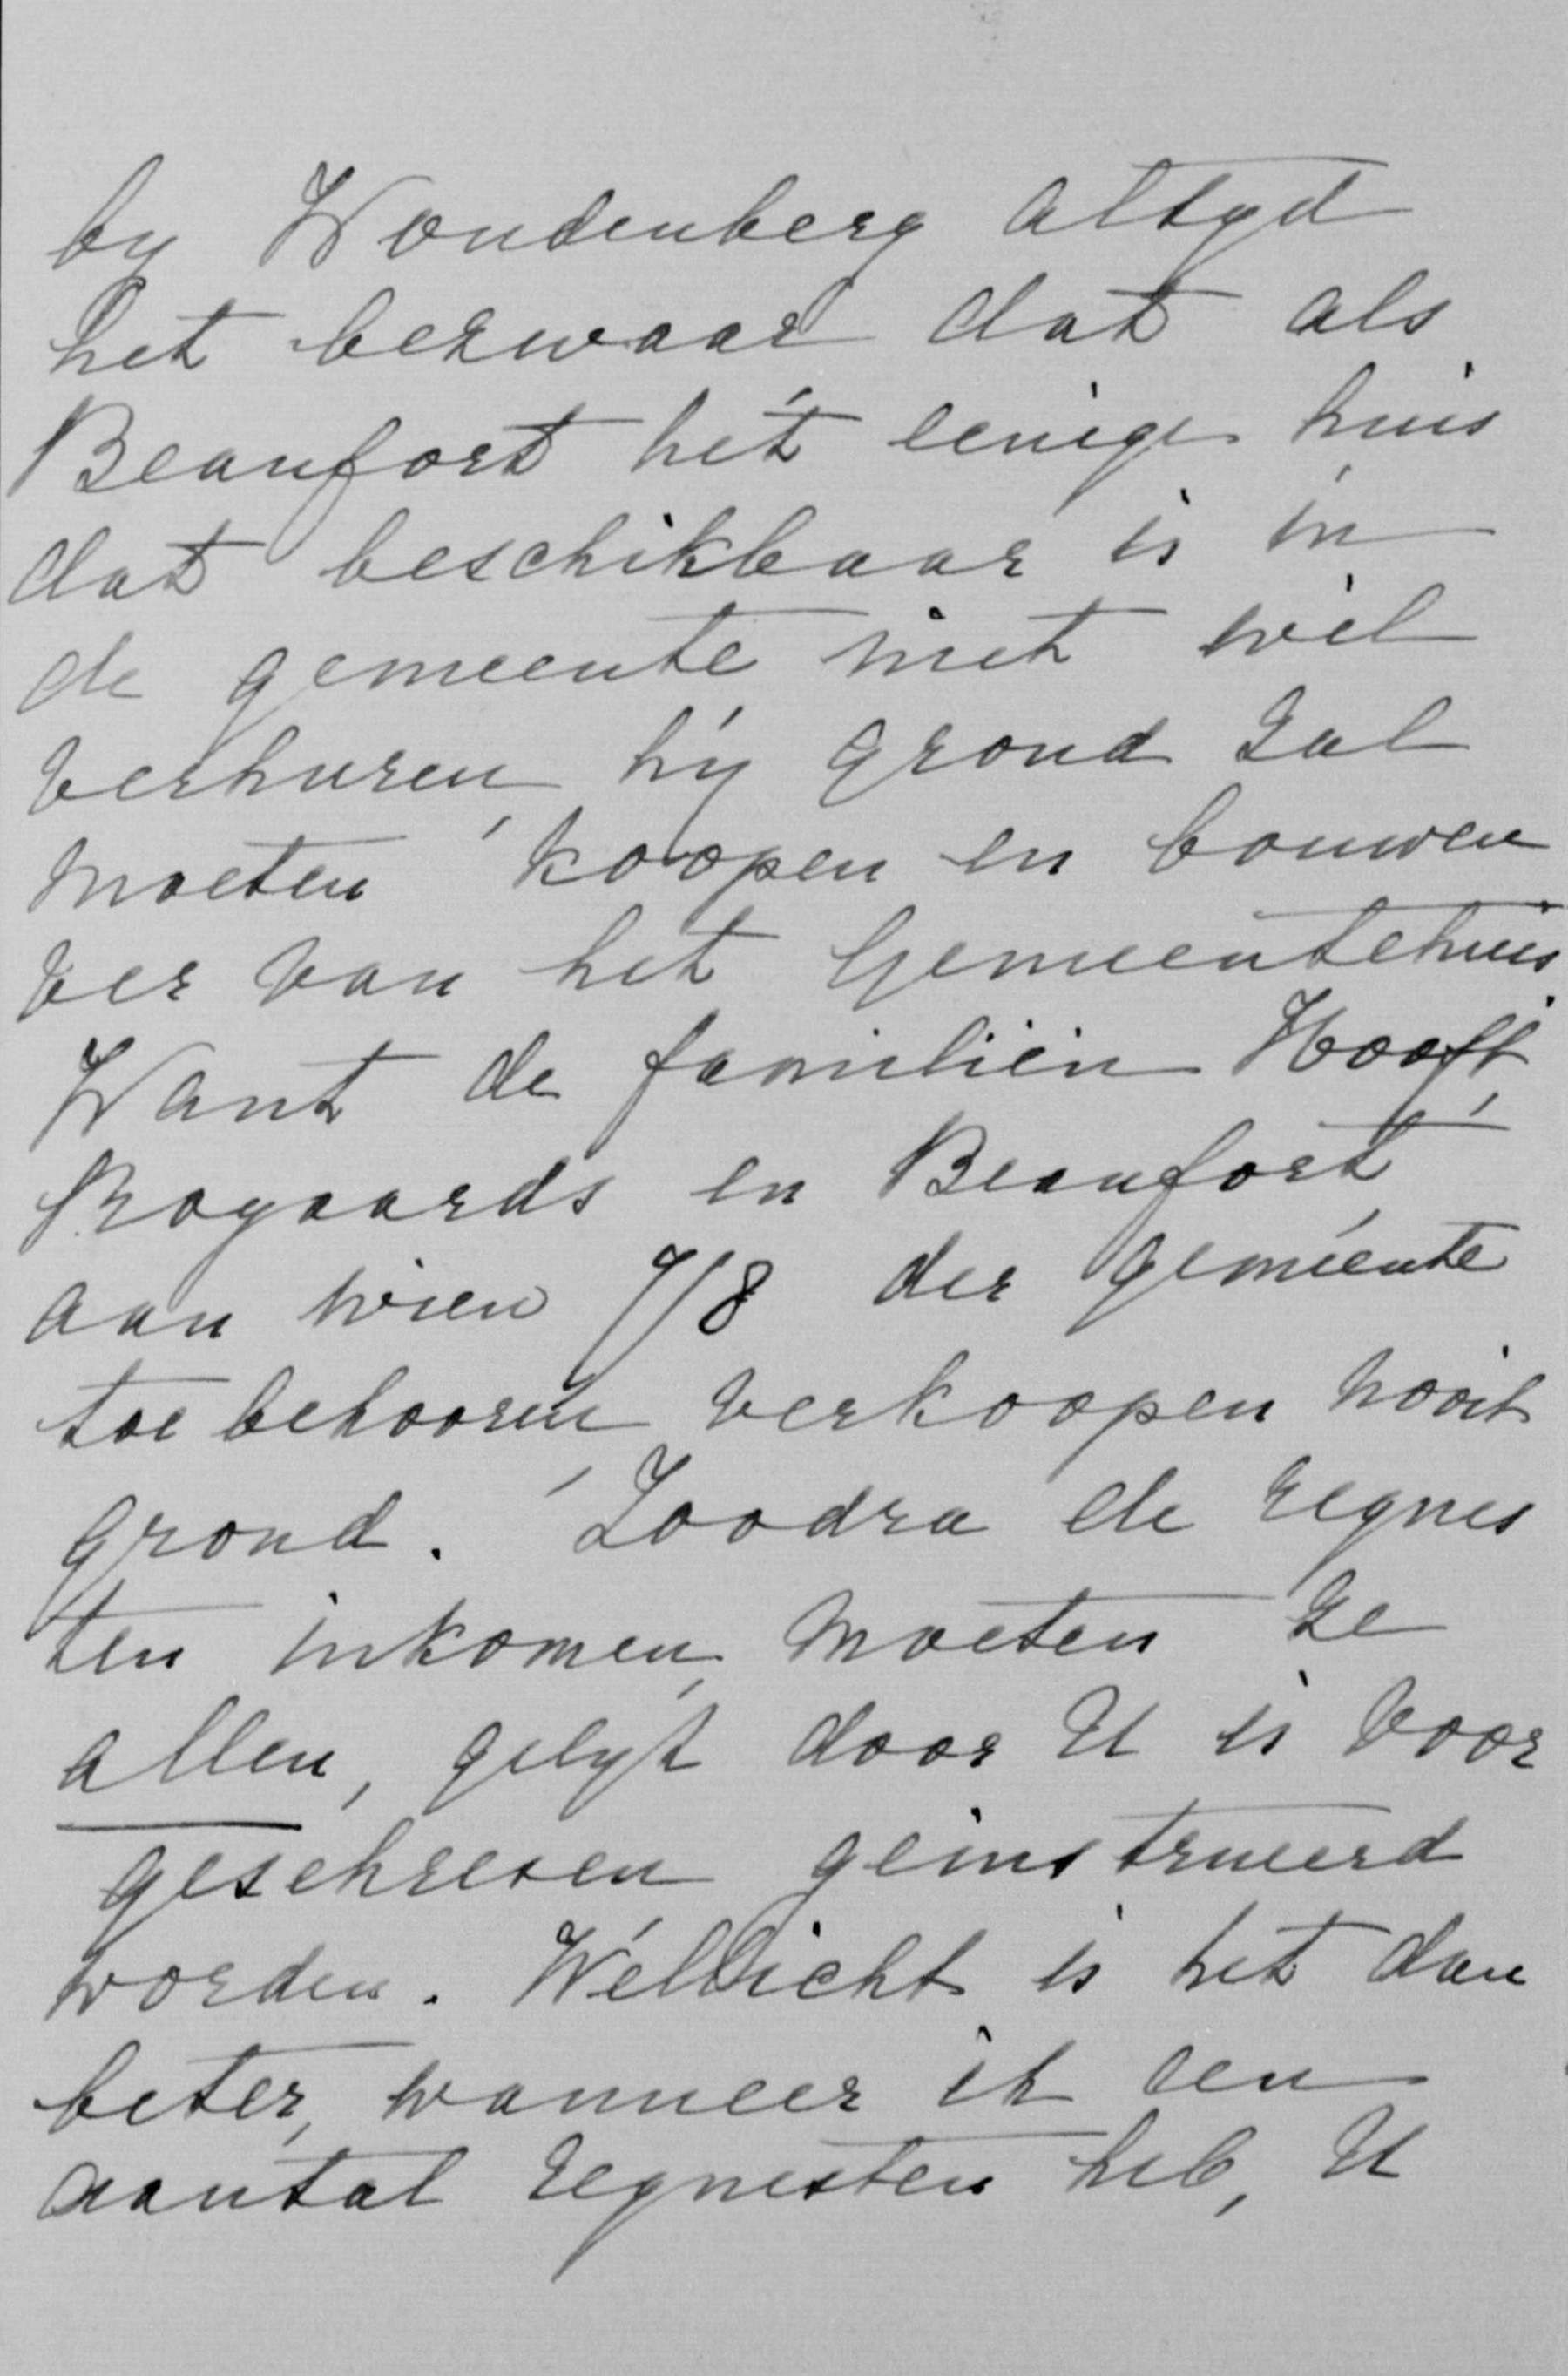 by Woudenberg altyd
het bezwaar dat als
Beaufort het eenige huis
dat beschikbaar is in
de gemeente niet wil
verhuren, hij grond zal
moeten koopen en bouwen
ver van het Gemeentehuis
Want de familiën Hooft,
Royaards en Beaufort
aan wien 7/8 der gemeente
toebehooren verkoopen nooit
grond. Zoodra de reques
ten inkomen, moeten ze
allen, gelyk door U is voor
geschreven geinstrueerd
worden. Wellicht is het dan
beter, wanneer ik een
aantal requesten heb, U